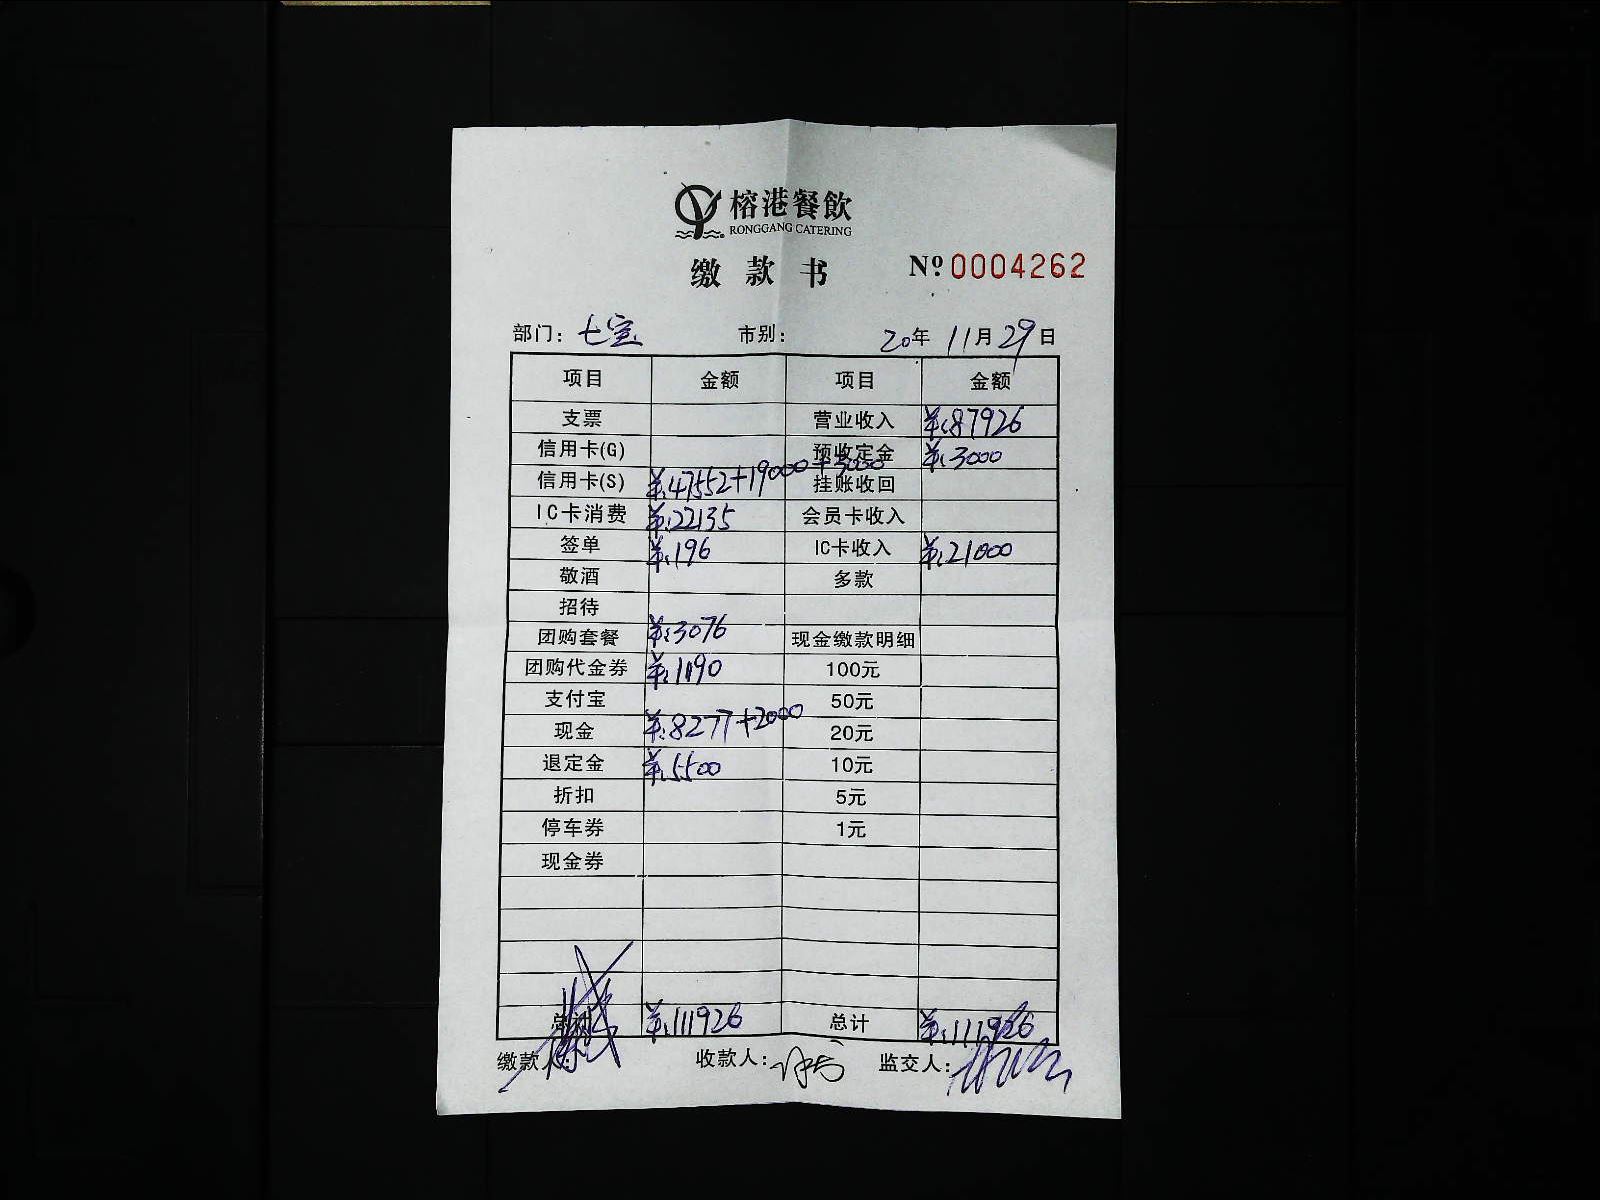 榕港餐飲
RONGGANG CATERING
缴款书 Nº 0004262
部门: 七宝 市别: 20年 11月 29日
项目 金额 项目 金额
支票 营业收入 ¥:87926
信用卡(G) 预收定金 ¥:3000
信用卡(S) ¥:47552+19000+3000 挂账收回
IC卡消费 ¥:22135 会员卡收入
签单 ¥:196 IC卡收入 ¥:21000
敬酒 多款
招待
团购套餐 ¥:3076 现金缴款明细
团购代金券 ¥:1190 100元
支付宝 50元
现金 ¥:8277+2000 20元
退定金 ¥:5500 10元
折扣 5元
停车券 1元
现金券
总计 ¥:111926 总计 ¥:111926
缴款人: 收款人: 监交人: